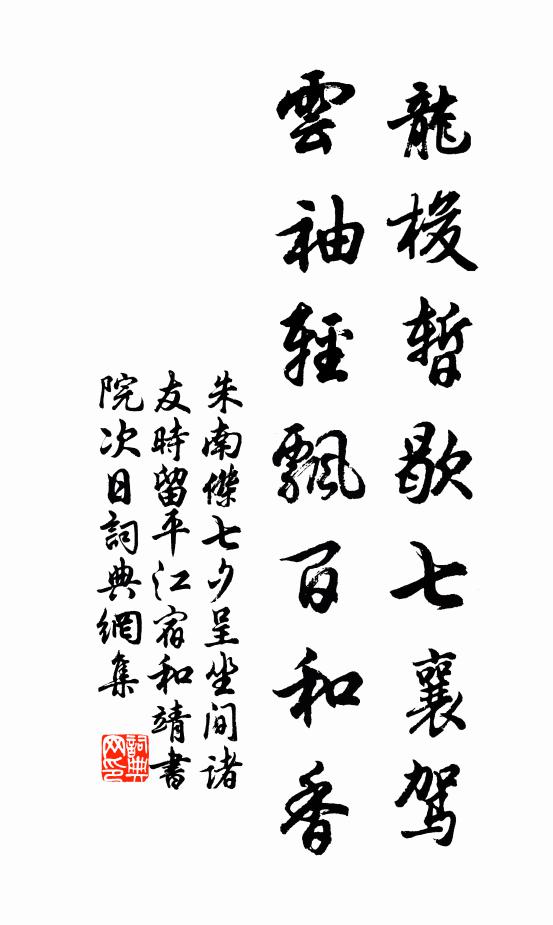 龍梭暫歇七襄駕
雲袖輕飄百和香
朱南傑七夕呈坐間諸
友時留平江宿和靖書
院次日詞典網集
詞典
网印